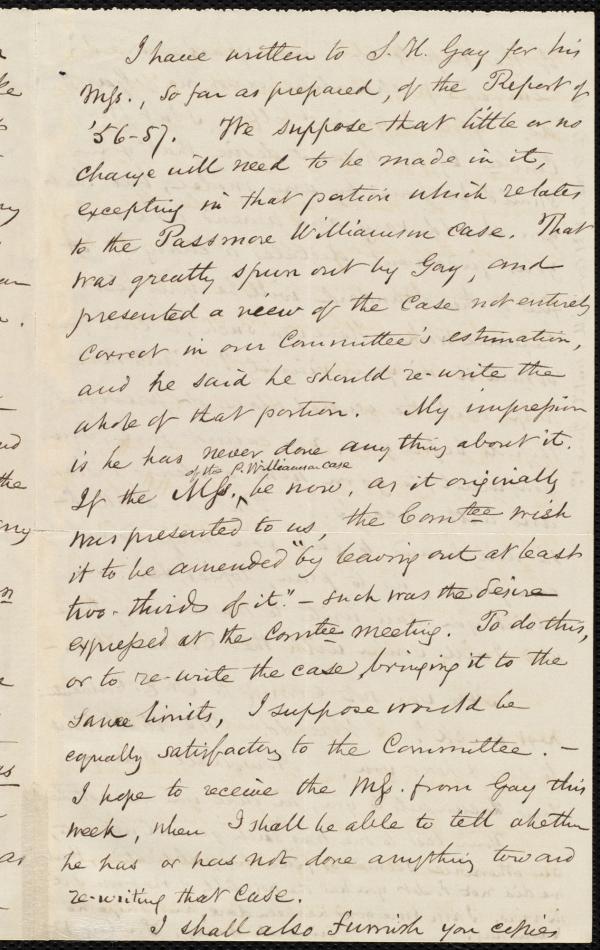 I have written to S. H. Gay for his
Mss., so far as prepared, of the Report of
'56-57. We suppose that little or no
change will need to be made in it,
excepting in that portion which relates
to the Passmore Williamson case. That
was greatly spun out by Gay, and
presented a view of the case not entirely
correct in our Committee's estimation,
and he said he should re-write the
whole of that portion. My impression
is he has never done any thing about it.
of the P. Williamson case
If the Mss. ‸ be now, as it originally
was presented to us, the Comtee wish
it to be amended "by leaving out at least
two-thirds of it." - such was the desire
expressed at the Comtee meeting. To do this,
or to re-write the case, bringing it to the
same limits, I suppose would be
equally satisfactory to the Committee. -
I hope to receive the Mss. from Gay this
week, when I shall be able to tell whether
he has or has not done anything toward
re-writing that case.
I shall also furnish you copies